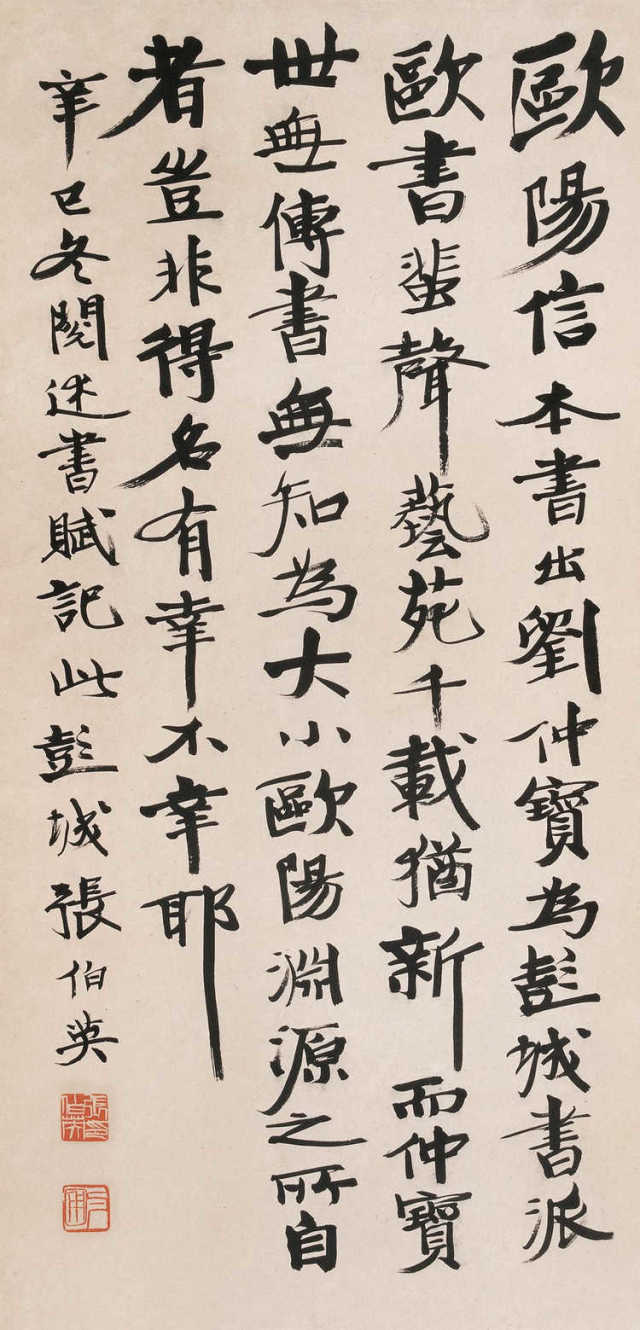 歐陽信本書出劉仲寶為彭城書派
歐書蜚聲藝苑千載猶新而仲寶
世無傳書無知為大小歐陽淵源之所自
者豈非得名有幸不幸耶
辛巳冬閱述書賦記此彭城張伯英